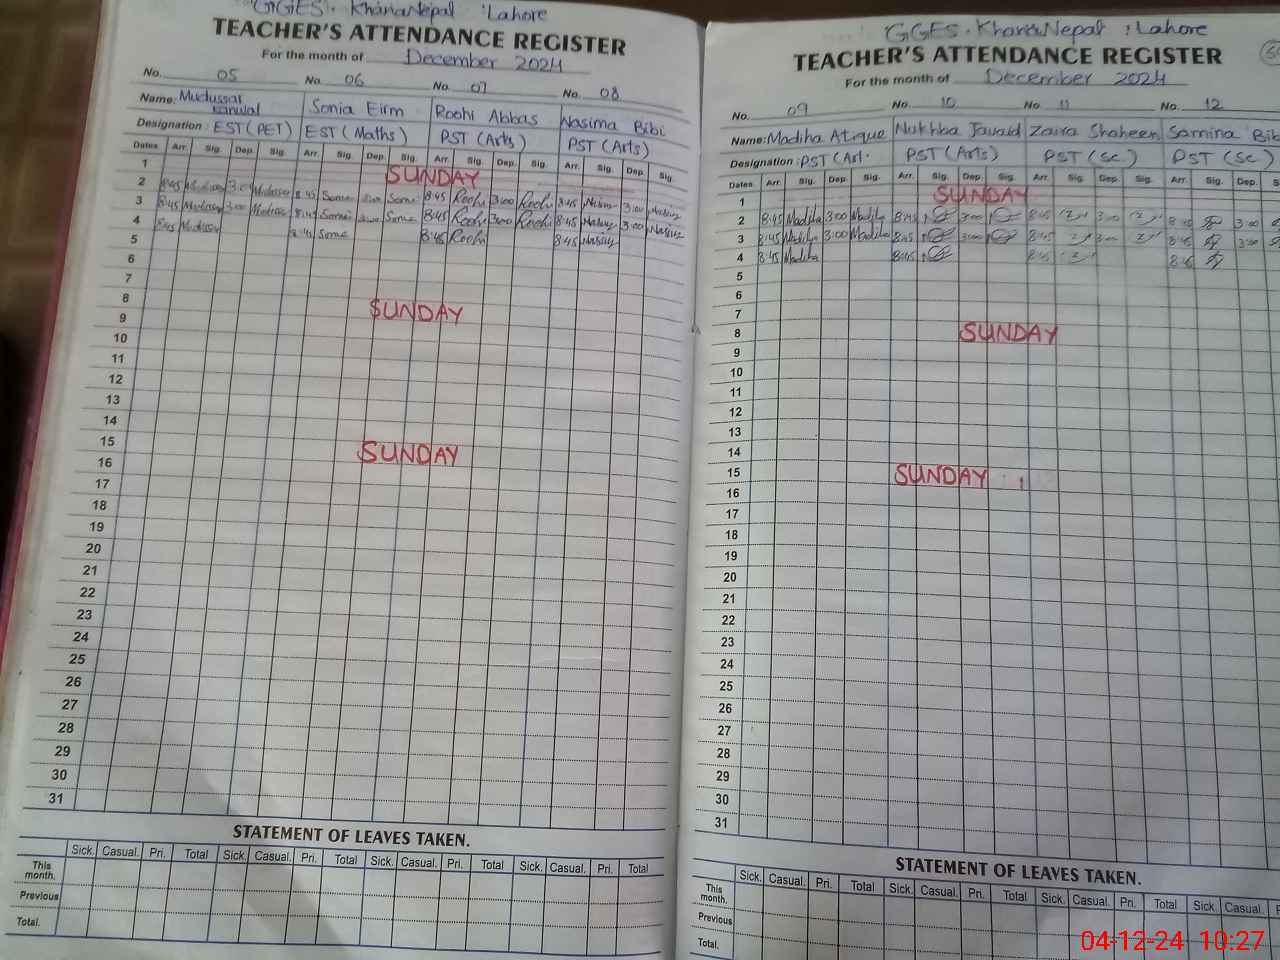 GGES. KhanaNepal :Lahore
TEACHER'S ATTENDANCE REGISTER
For the month of December 2024
No. 05 No. 06 No. 07 No. 08
Name: Mudussar Kanwal Sonia Eirm Roohi Abbas Nasima Bibi
Designation: EST (PET) EST (Maths) PST (Arts) PST (Arts)
Dates Arr. Sig. Dep. Sig. Arr. Sig. Dep. Sig. Arr. Sig. Dep. Sig. Arr. Sig. Dep. Sig.
1 SUNDAY
2 8:45 3:00 8:45 8:45 Roohi 3:00 Roohi 8:45 3:00
3 8:45 3:00 8:45 8:45 Roohi 3:00 Roohi 8:45 3:00
4 8:45 8:45 8:45 Roohi 8:45
5
6
7
8 SUNDAY
9
10
11
12
13
14
15 SUNDAY
16
17
18
19
20
21
22
23
24
25
26
27
28
29
30
31
STATEMENT OF LEAVES TAKEN.
Sick. Casual. Pri. Total Sick. Casual. Pri. Total Sick. Casual. Pri. Total Sick. Casual. Pri. Total
This month.
Previous
Total.
GGES. KhanaNepal :Lahore
TEACHER'S ATTENDANCE REGISTER
For the month of December 2024
No. 09 No. 10 No. 11 No. 12
Name: Madiha Atique Nukhba Javaid Zaira Shaheen Samina Bib
Designation: PST (Art. PST (Arts) PST (Sc.) PST (Sc)
Dates Arr. Sig. Dep. Sig. Arr. Sig. Dep. Sig. Arr. Sig. Dep. Sig. Arr. Sig. Dep. S
1 SUNDAY
2 8:45 Madiha 3:00 Madiha 8:45 3:00 8:45 3:00 8:45 3:00
3 8:45 Madiha 3:00 Madiha 8:45 3:00 8:45 3:00 8:45 3:00
4 8:45 Madiha 8:45 8:45 8:45
5
6
7
8 SUNDAY
9
10
11
12
13
14
15 SUNDAY
16
17
18
19
20
21
22
23
24
25
26
27
28
29
30
31
STATEMENT OF LEAVES TAKEN.
Sick. Casual. Pri. Total Sick. Casual. Pri. Total Sick. Casual. Pri. Total Sick. Casual. P
This month.
Previous
Total.
04-12-24 10:27